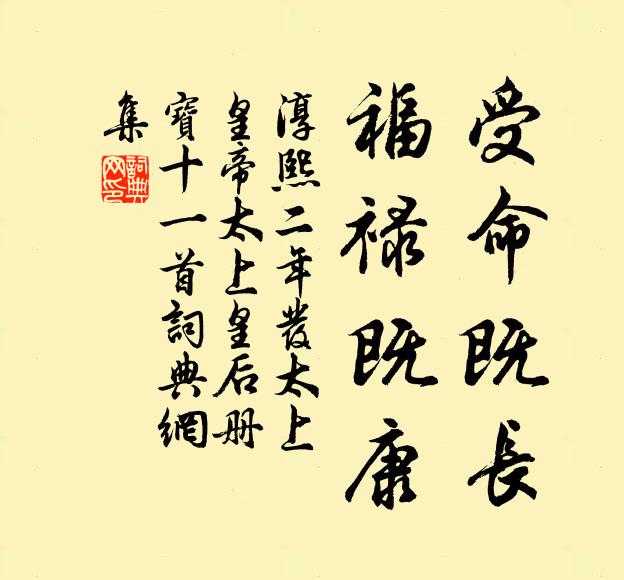 受命既長
福禄既康
淳熙二年發太上
皇帝太上皇后册
寶十一首詞典網
集
詞典
网印